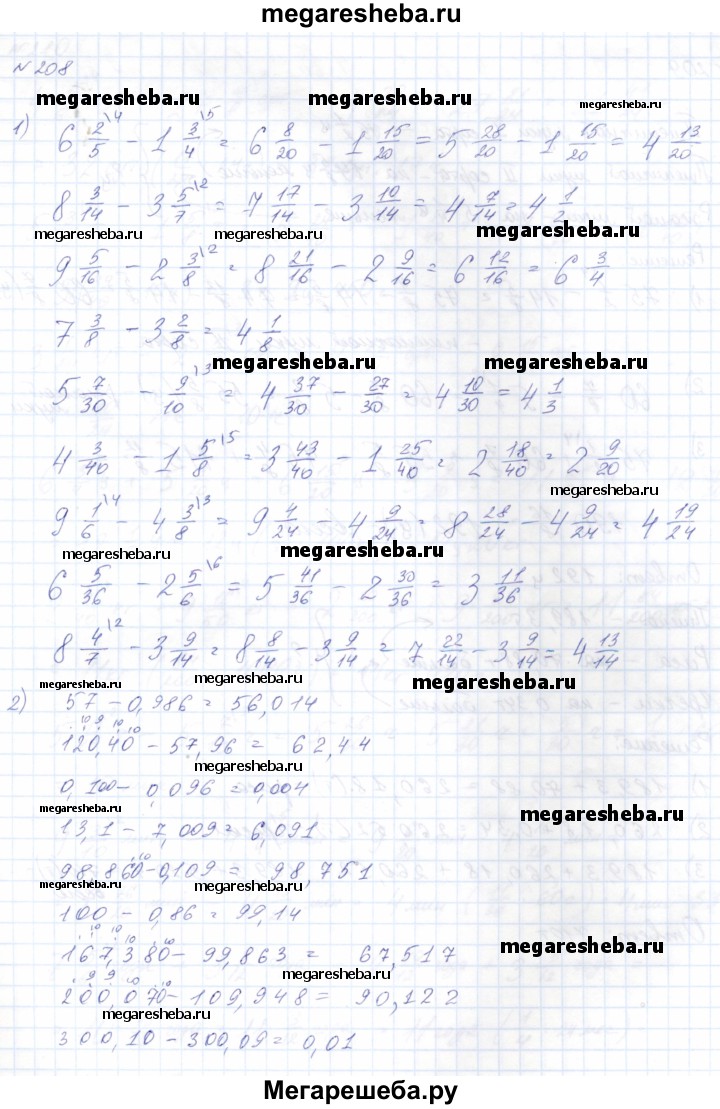 megaresheba.ru
N 208
megaresheba.ru megaresheba.ru megaresheba.ru
1) 6 2/5 \4 - 1 3/4 \5 = 6 8/20 - 1 15/20 = 5 28/20 - 1 15/20 = 4 13/20
8 3/14 - 3 5/7 \2 = 7 17/14 - 3 10/14 = 4 7/14 = 4 1/2
megaresheba.ru megaresheba.ru megaresheba.ru
9 5/16 - 2 3/8 \2 = 8 21/16 - 2 9/16 = 6 12/16 = 6 3/4
7 3/8 - 3 2/8 = 4 1/8
megaresheba.ru megaresheba.ru
5 7/30 - 9/10 \3 = 4 37/30 - 27/30 = 4 10/30 = 4 1/3
4 3/40 - 1 5/8 \5 = 3 43/40 - 1 25/40 = 2 18/40 = 2 9/20
megaresheba.ru
9 1/6 \4 - 4 3/8 \3 = 9 4/24 - 4 9/24 = 8 28/24 - 4 9/24 = 4 19/24
megaresheba.ru megaresheba.ru
6 5/36 - 2 5/6 \6 = 5 41/36 - 2 30/36 = 3 11/36
8 4/7 \2 - 3 9/14 = 8 8/14 - 3 9/14 = 7 22/14 - 3 9/14 = 4 13/14
megaresheba.ru megaresheba.ru
2) 57 - 0,986 = 56,014
10 9 10 10
120,40 - 57,96 = 62,44
megaresheba.ru
0,100 - 0,096 = 0,004
megaresheba.ru
13,1 - 7,009 = 6,091
megaresheba.ru
megaresheba.ru
10
98,860 - 0,109 = 98,751
megaresheba.ru megaresheba.ru
100 - 0,86 = 99,14
10 10 10 10
167,380 - 99,863 = 67,517
megaresheba.ru
megaresheba.ru
9 9 10 10
200,070 - 109,948 = 90,122
megaresheba.ru
300,10 - 300,09 = 0,01
Мегарешеба.ру